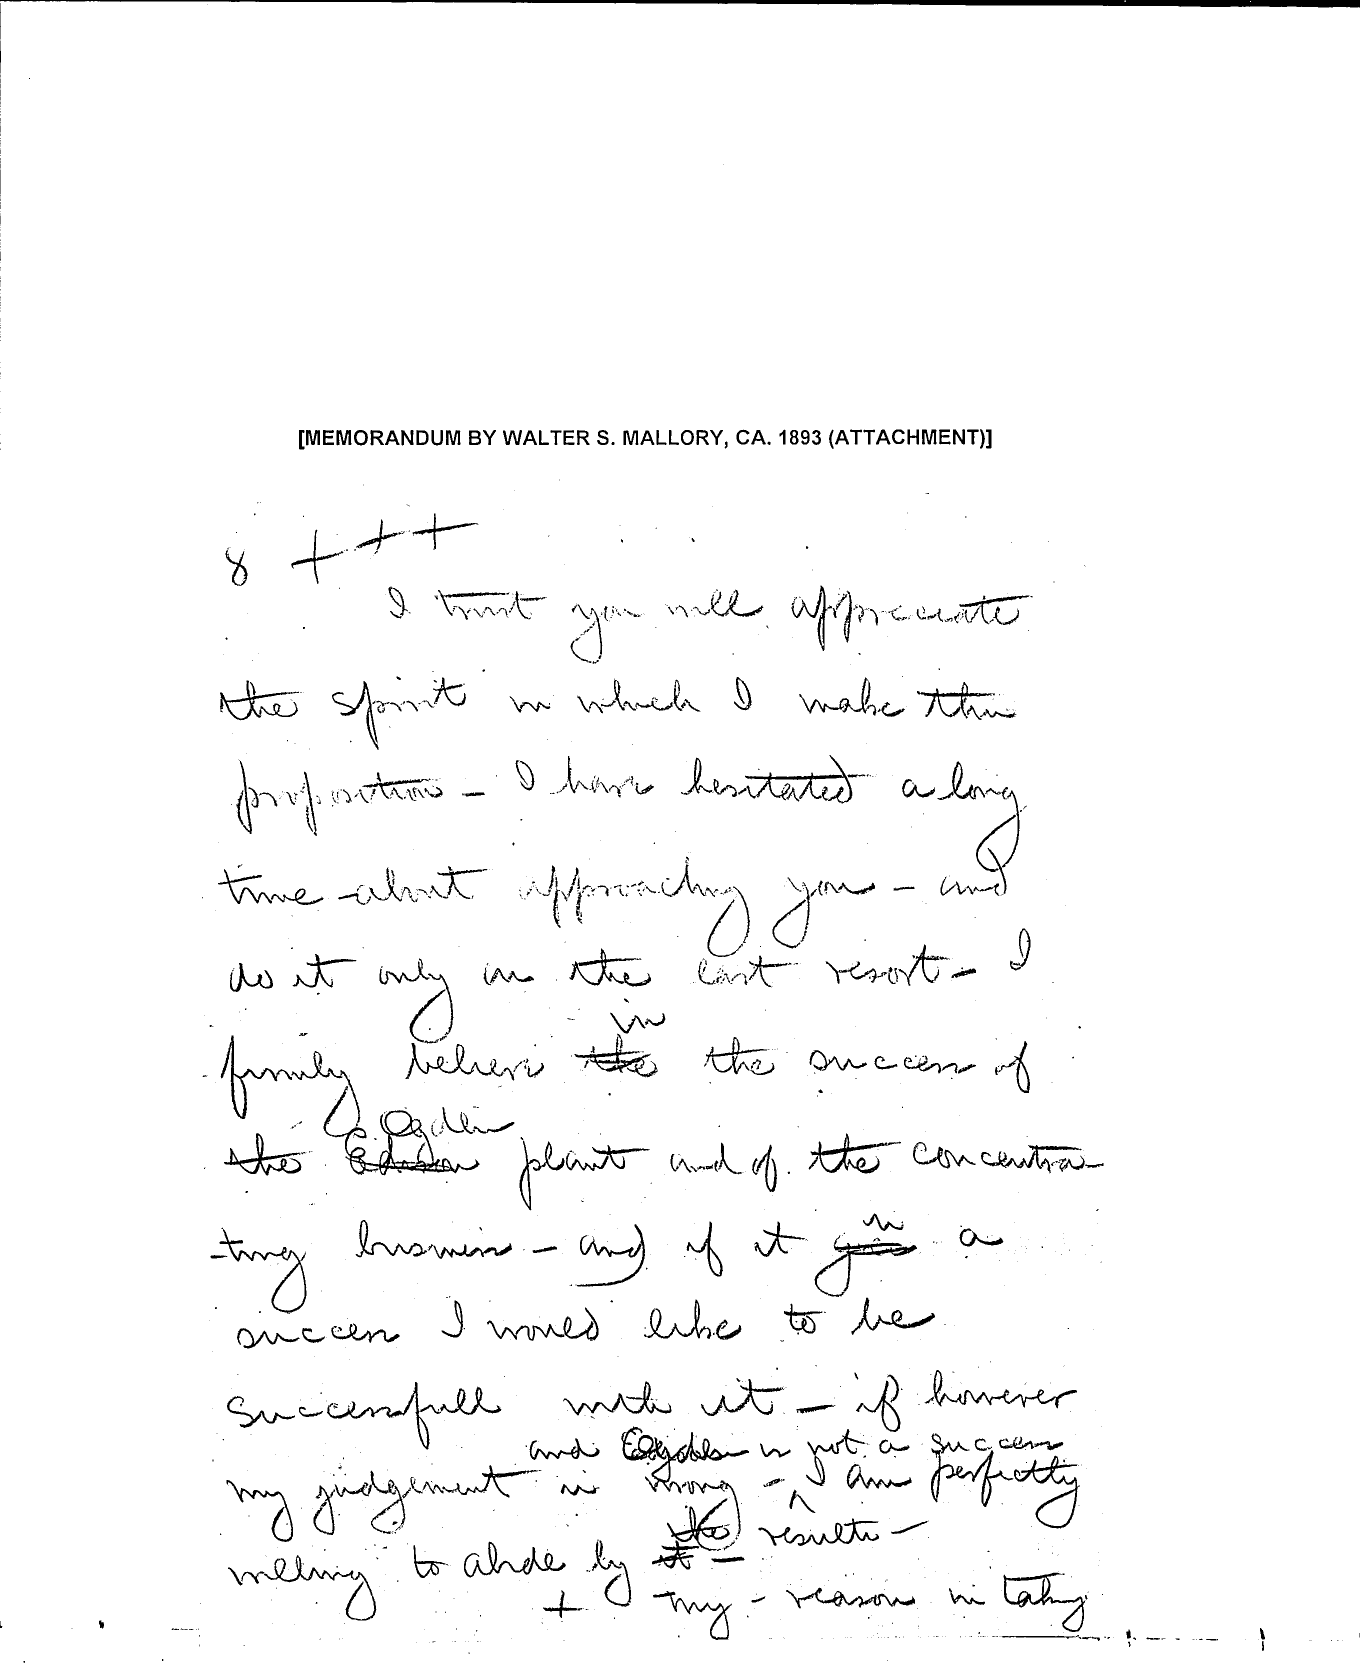 [MEMORANDUM BY WALTER S. MALLORY, CA. 1893 (ATTACHMENT)]
8 +++
I trust you will appreciate
the spirit in which I make this
proposition – I have hesitated a long
time about approaching you – and
do it only as the last resort – I
in
firmly believe the the success of
Ogden
the Edison plant and of the concentra-
-ting business – and if it goes a
is
success I would like to be
successfull with it – if however
and Ogden is not a success
my judgement is wrong – ^ I am perfectly
the results –
willing to abide by it –
+ my – reason in taking